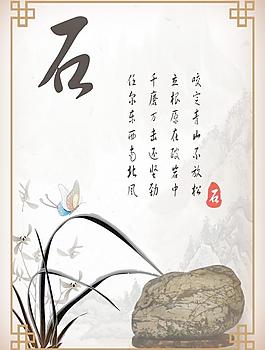 石
咬定青山不放松
立根原在破岩中
千磨万击还坚劲
任尔东西南北风
石